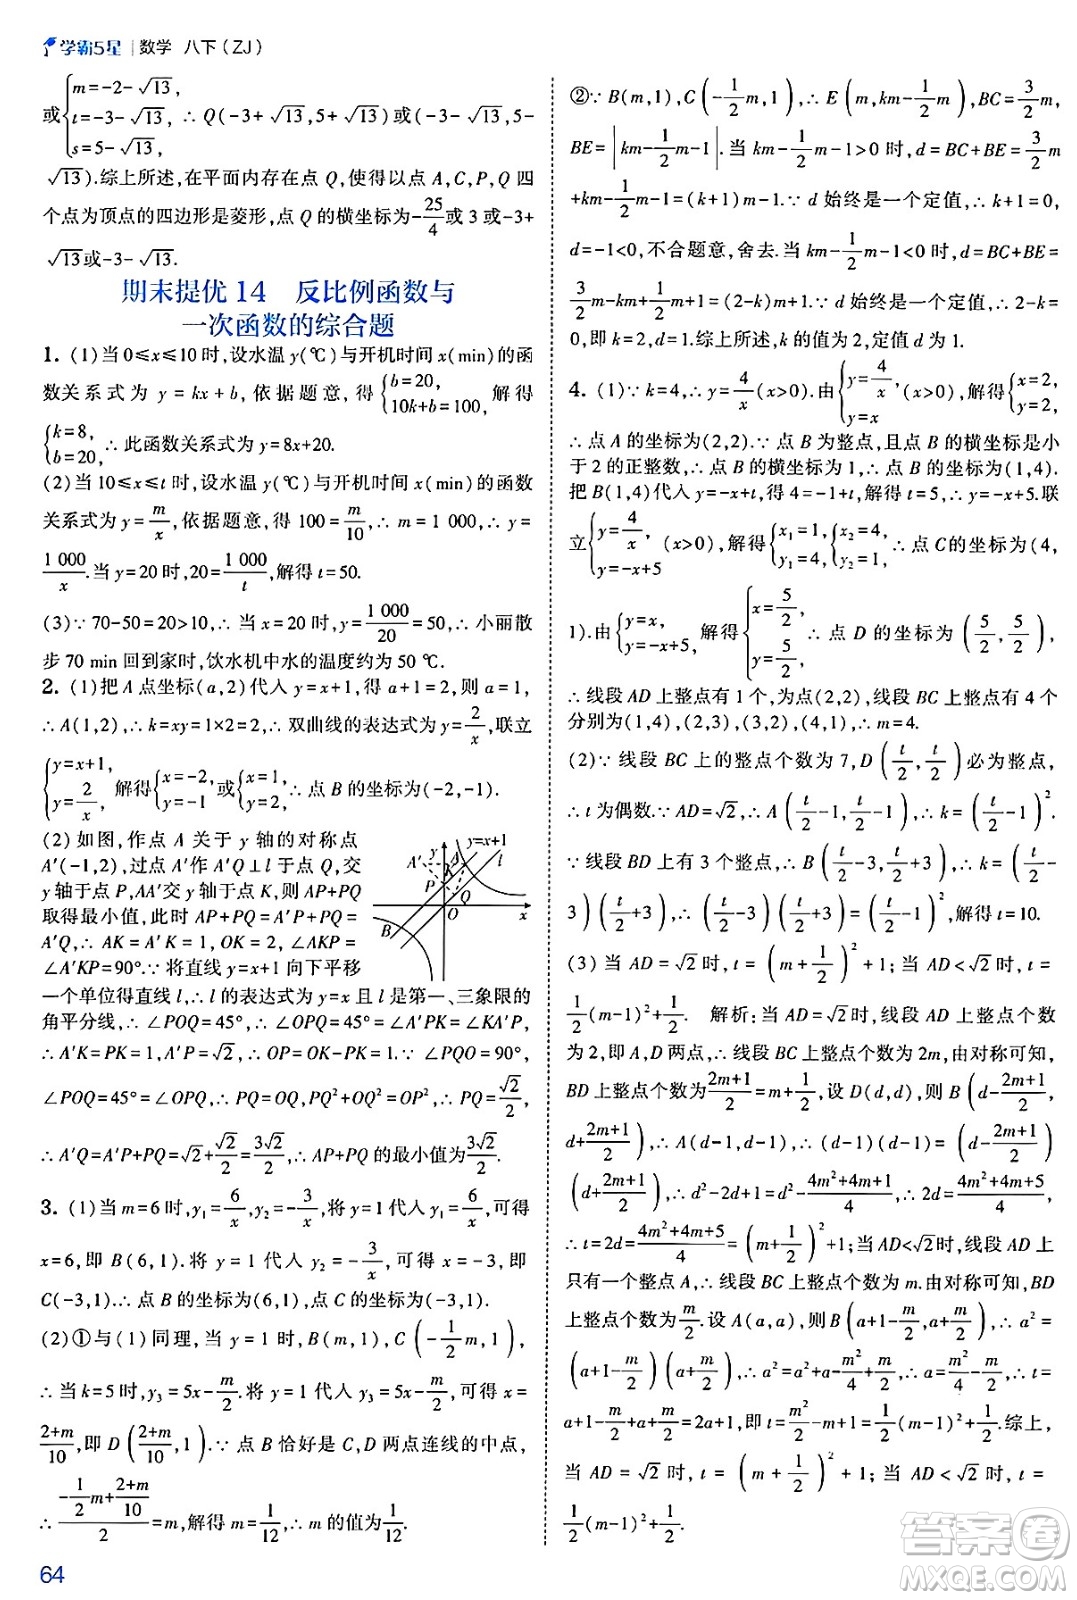 学霸5星 数学 八下(ZJ)
或{m=-2-√13, t=-3-√13, s=5-√13, ∴Q(-3+√13,5+√13)或(-3-√13,5-
√13).综上所述,在平面内存在点 Q,使得以点 A,C,P,Q 四
个点为顶点的四边形是菱形,点 Q 的横坐标为-25/4或 3 或-3+
√13或-3-√13.
期末提优 14 反比例函数与
一次函数的综合题
1. (1)当 0≤x≤10 时,设水温 y(℃)与开机时间 x(min)的函
数关系式为 y=kx+b,依据题意,得{b=20, 10k+b=100, 解得
{k=8, b=20, ∴此函数关系式为 y=8x+20.
(2)当 10≤x≤t 时,设水温 y(℃)与开机时间 x(min)的函数
关系式为 y=m/x,依据题意,得 100=m/10,∴m=1 000,∴y=
1 000/x.当 y=20 时,20=1 000/t,解得 t=50.
(3)∵70-50=20>10,∴当 x=20 时,y=1 000/20=50,∴小丽散
步 70 min 回到家时,饮水机中水的温度约为 50 ℃.
2. (1)把 A 点坐标(a,2)代入 y=x+1,得 a+1=2,则 a=1,
∴A(1,2),∴k=xy=1×2=2,∴双曲线的表达式为 y=2/x,联立
{y=x+1, y=2/x, 解得{x=-2, y=-1或{x=1, y=2, ∴点 B 的坐标为(-2,-1).
(2)如图,作点 A 关于 y 轴的对称点
A′(-1,2),过点 A′作 A′Q⊥l 于点 Q,交
y 轴于点 P,AA′交 y 轴于点 K,则 AP+PQ
取得最小值,此时 AP+PQ=A′P+PQ=
A′Q,∴AK=A′K=1,OK=2,∠AKP=
∠A′KP=90°.∵将直线 y=x+1 向下平移
y y=x+1
A′ K A l
P
Q
O x
B
一个单位得直线 l,∴l 的表达式为 y=x 且 l 是第一、三象限的
角平分线,∴∠POQ=45°,∴∠OPQ=45°=∠A′PK=∠KA′P,
∴A′K=PK=1,∴A′P=√2,∴OP=OK-PK=1.∵∠PQO=90°,
∠POQ=45°=∠OPQ,∴PQ=OQ,∴PQ²+OQ²=OP²,∴PQ=√2/2,
∴A′Q=A′P+PQ=√2+√2/2=3√2/2,∴AP+PQ的最小值为3√2/2.
3. (1)当 m=6 时,y₁=6/x,y₂=-3/x,将 y=1 代入 y₁=6/x,可得
x=6,即 B(6,1).将 y=1 代入 y₂=-3/x,可得 x=-3,即
C(-3,1).∴点 B 的坐标为(6,1),点 C 的坐标为(-3,1).
(2)①与(1)同理,当 y=1 时,B(m,1),C(-1/2m,1).
∴当 k=5 时,y₃=5x-m/2.将 y=1 代入 y₃=5x-m/2,可得 x=
(2+m)/10,即 D((2+m)/10,1).∵点 B 恰好是 C,D 两点连线的中点,
∴(-1/2m+(2+m)/10)/2=m,解得 m=1/12,∴m 的值为1/12.
②∵B(m,1),C(-1/2m,1),∴E(m,km-1/2m),BC=3/2m,
BE=|km-1/2m-1|.当 km-1/2m-1>0 时,d=BC+BE=3/2m
+km-1/2m-1=(k+1)m-1.∵d 始终是一个定值,∴k+1=0,
d=-1<0,不合题意,舍去.当 km-1/2m-1<0 时,d=BC+BE=
3/2m-km+1/2m+1=(2-k)m+1.∵d 始终是一个定值,∴2-k=
0,即 k=2,d=1.综上所述,k 的值为 2,定值 d 为 1.
4. (1)∵k=4,∴y=4/x(x>0).由{y=4/x, y=x (x>0),解得{x=2, y=2,
∴点 A 的坐标为(2,2).∵点 B 为整点,且点 B 的横坐标是小
于 2 的正整数,∴点 B 的横坐标为 1,∴点 B 的坐标为(1,4).
把 B(1,4)代入 y=-x+t,得 4=-1+t,解得 t=5,∴y=-x+5.联
立{y=4/x, y=-x+5 (x>0),解得{x₁=1, y₁=4,{x₂=4, y₂=1, ∴点 C的坐标为(4,
1).由{y=x, y=-x+5, 解得{x=5/2, y=5/2, ∴点 D 的坐标为(5/2,5/2),
∴线段 AD 上整点有 1 个,为点(2,2),线段 BC 上整点有 4 个
分别为(1,4),(2,3),(3,2),(4,1),∴m=4.
(2)∵线段 BC 上的整点个数为 7,D(t/2,t/2)必为整点,
∴t 为偶数.∵AD=√2,∴A(t/2-1,t/2-1),∴k=(t/2-1)².
∵线段 BD 上有 3 个整点,∴B(t/2-3,t/2+3),∴k=(t/2-
3)(t/2+3),∴(t/2-3)(t/2+3)=(t/2-1)²,解得 t=10.
(3)当 AD=√2时,t=(m+1/2)²+1;当 AD<√2时,t=
1/2(m-1)²+1/2. 解析:当 AD=√2时,∵AD 上整点个数
为 2,即 A,D 两点,∴线段 BC 上整点个数为 2m,由对称可知,
BD 上整点个数为(2m+1)/2=m+1/2,设 D(d,d),则 B(d-(2m+1)/2,
d+(2m+1)/2),∴A(d-1,d-1),∴(d-1)(d-1)=(d-(2m+1)/2)
(d+(2m+1)/2),∴d²-2d+1=d²-(4m²+4m+1)/4,∴2d=(4m²+4m+5)/4,
∴t=2d=(4m²+4m+5)/4=(m+1/2)²+1;当 AD<√2时,∵AD 上
只有一个整点 A,∴线段 BC 上整点个数为 m.由对称可知,BD
上整点个数为m/2.设 A(a,a),则 B(a+1-m/2,a+m/2),∴a²=
(a+1-m/2)(a+m/2),∴a²=a²+a-m²/4+m/2,∴a=m²/4-m/2,∴t=
a+1-m/2+a+m/2=2a+1,即 t=m²/2-m+1=1/2(m-1)²+1/2.综上,
当 AD=√2时,t=(m+1/2)²+1;当 AD<√2时,t=
1/2(m-1)²+1/2.
64
答案圈
MXQE.COM